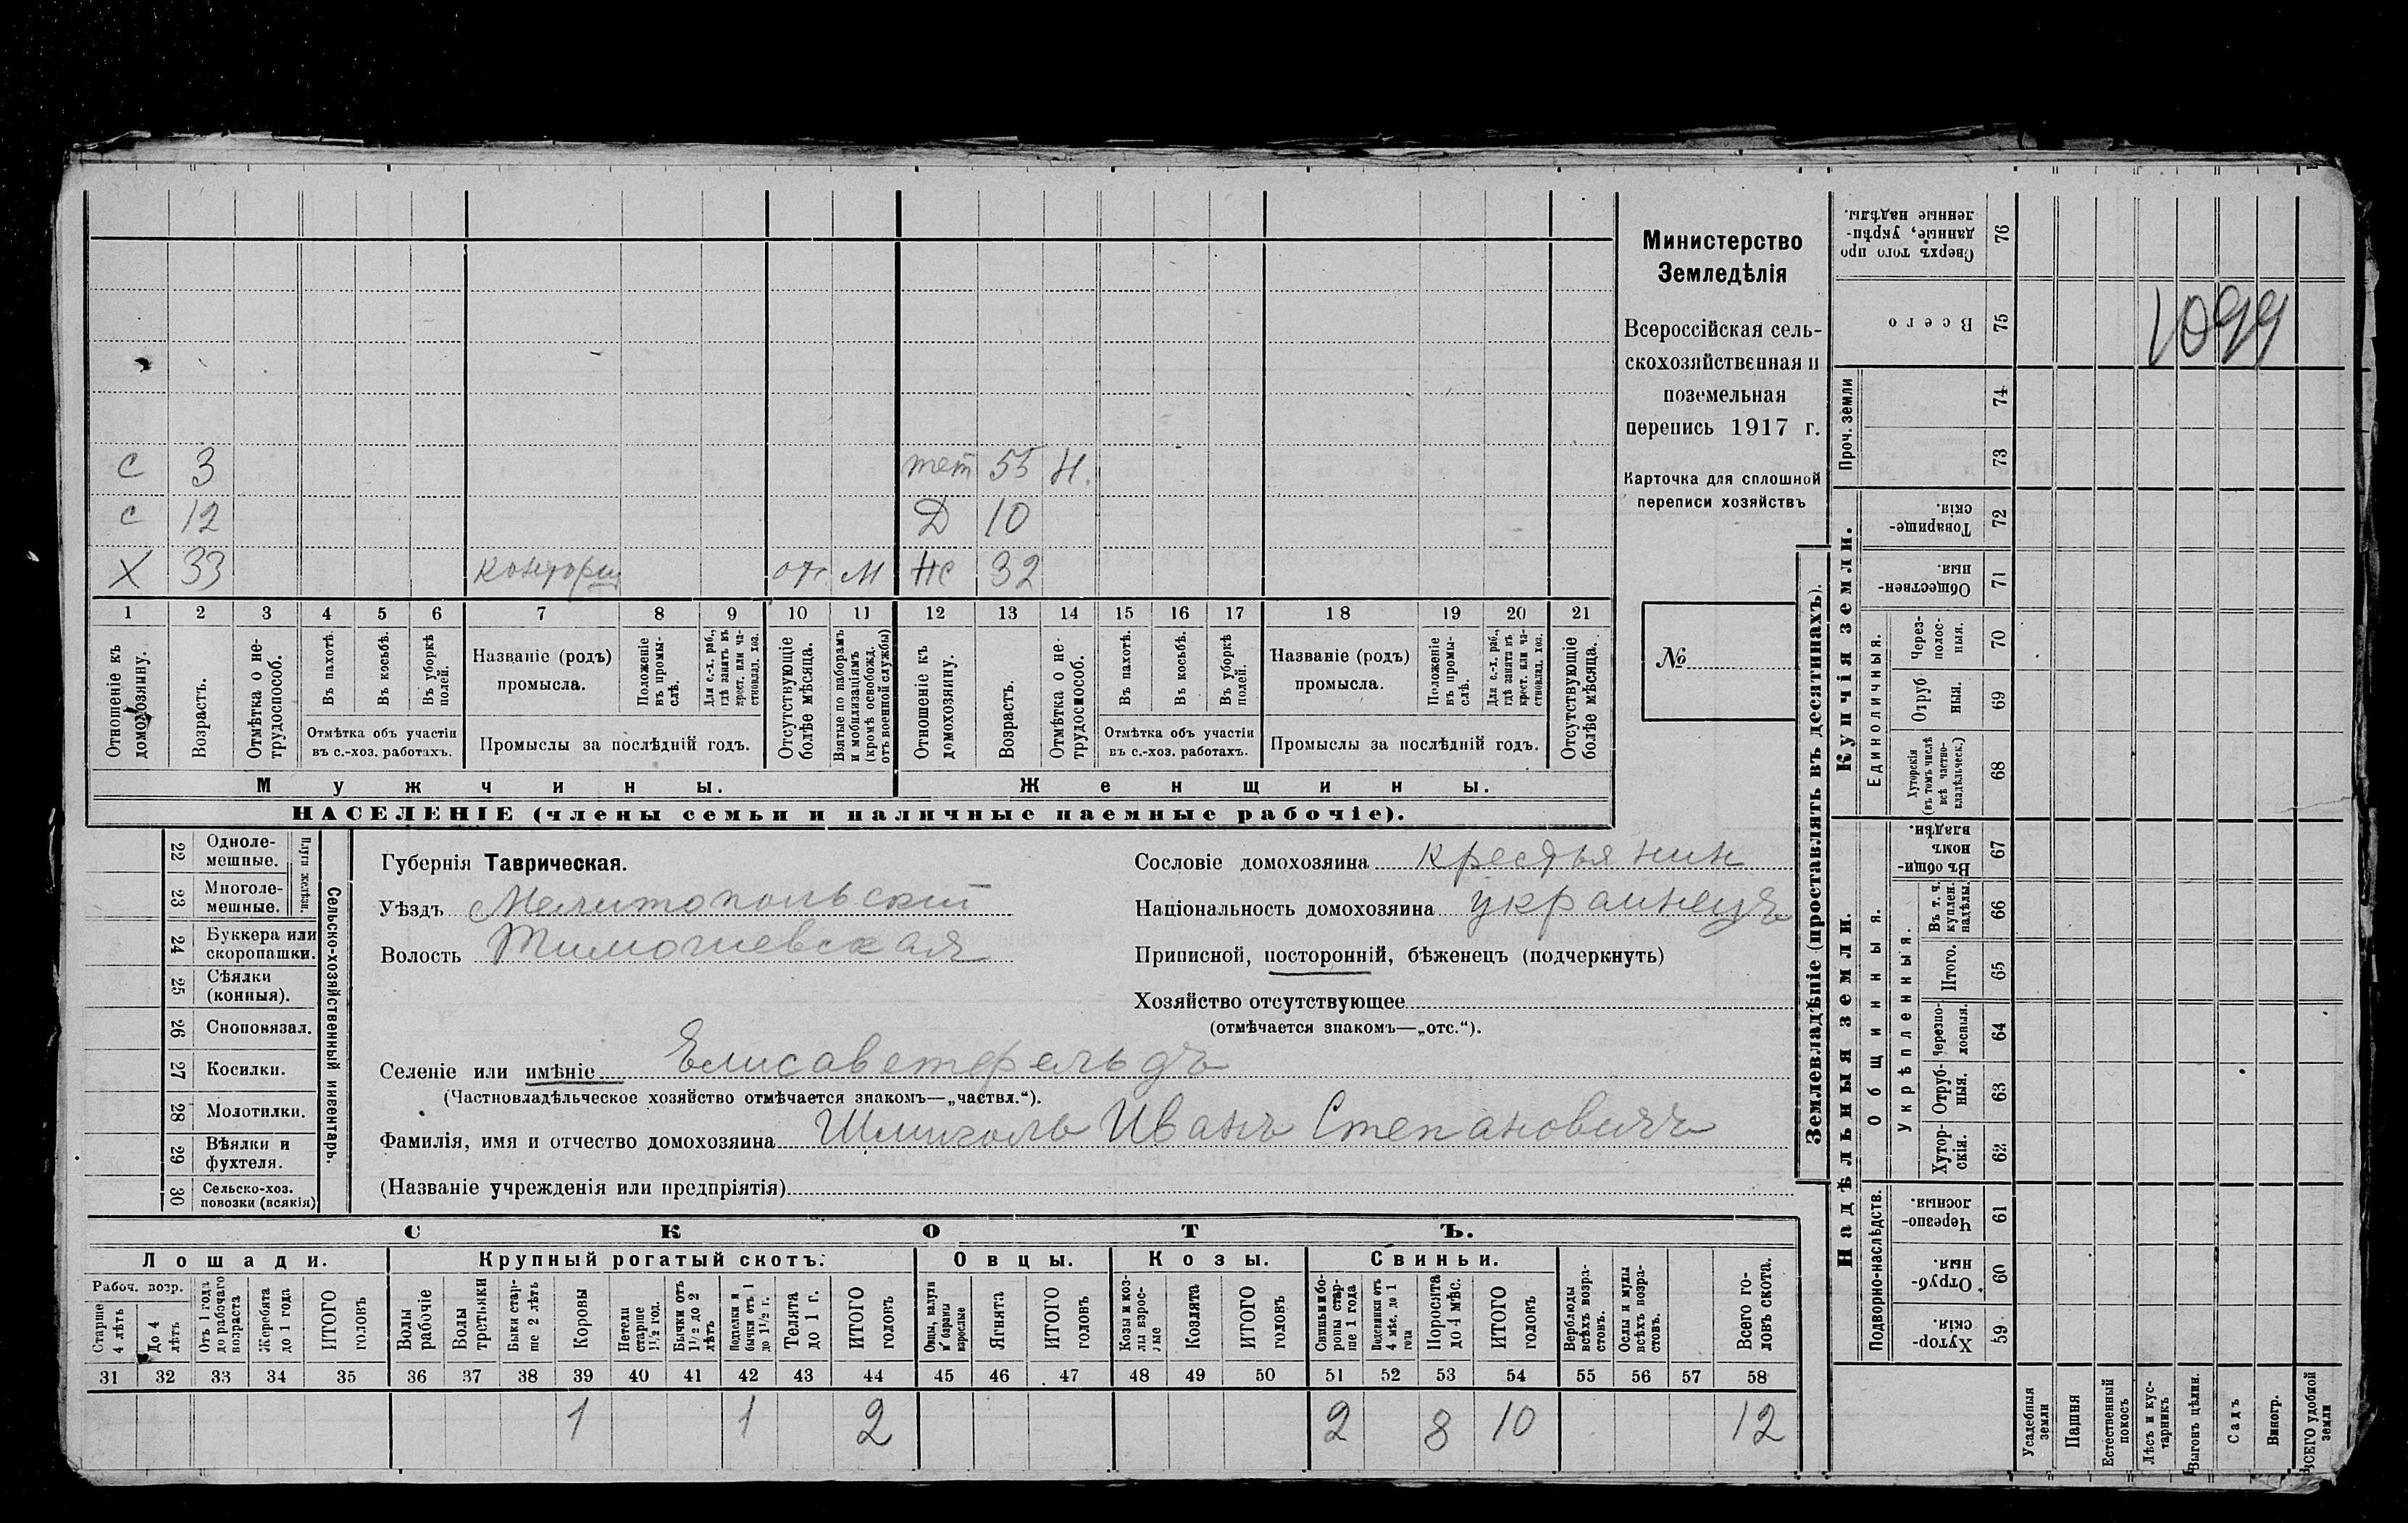 С 3 тет 55 Н.
С 12 Д 10
Х 33 конторщ отс М Же 32
1 2 3 4 5 6 7 8 9 10 11 12 13 14 15 16 17 18 19 20 21
Отношеніе къ домохозяину.
Возрастъ.
Отмѣтка о нетрудоспособ.
Въ пахотѣ.
Въ косьбѣ.
Въ уборкѣ полей.
Отмѣтка объ участіи въ с.-хоз. работахъ.
Названіе (родъ) промысла.
Положеніе въ промыслѣ.
Для с.-х. раб., гдѣ занятъ въ крест. или частновлад. хоз.
Промыслы за послѣдній годъ.
Отсутствующіе болѣе мѣсяца.
Взятые по наборамъ и мобилизаціямъ (кромѣ освобожд. отъ военной службы)
Отношеніе къ домохозяину.
Возрастъ.
Отмѣтка о нетрудоспособ.
Въ пахотѣ.
Въ косьбѣ.
Въ уборкѣ полей.
Отмѣтка объ участіи въ с.-хоз. работахъ.
Названіе (родъ) промысла.
Положеніе въ промыслѣ.
Для с.-х. раб., гдѣ занята въ крест. или частновлад. хоз.
Промыслы за послѣдній годъ.
Отсутствующіе болѣе мѣсяца.
Мужчины.
Женщины.
НАСЕЛЕНІЕ (члены семьи и наличные наемные рабочіе).
Министерство
Земледѣлія
Всероссійская сель-
скохозяйственная и
поземельная
перепись 1917 г.
Карточка для сплошной
переписи хозяйствъ
№
22 Одноле-
мешные.
23 Многоле-
мешные.
Плуги желѣзн.
24 Буккера или
скоропашки.
25 Сѣялки
(конныя).
26 Сноповязал.
27 Косилки.
28 Молотилки.
29 Вѣялки и
фухтеля.
30 Сельско-хоз.
повозки (всякія)
Сельско-хозяйственный инвентарь.
Губернія Таврическая.
Уѣздъ Мелитопольскій
Волость Тимошевская
Сословіе домохозяина крестьянин
Національность домохозяина украинецъ
Приписной, посторонній, бѣженецъ (подчеркнуть)
Хозяйство отсутствующее
(отмѣчается знакомъ—„отс.“).
Селеніе или имѣніе Елисаветфельдъ
(Частновладѣльческое хозяйство отмѣчается знакомъ—„частвл.“).
Фамилія, имя и отчество домохозяина Шмиголь Иванъ Степановичъ
(Названіе учрежденія или предпріятія)
СКОТЪ.
Лошади.
Крупный рогатый скотъ.
Овцы.
Козы.
Свиньи.
Рабоч. возр.
Старше 4 лѣтъ
До 4 лѣтъ
Отъ 1 года до рабочаго возраста
Жеребята до 1 года
ИТОГО головъ
Волы рабочіе
Волы третьяки
Быки старше 2 лѣтъ
Коровы
Нетели старше 1½ год.
Бычки отъ 1½ до 2 лѣтъ
Подтелки и бычки отъ 1 до 1½ г.
Телята до 1 г.
ИТОГО головъ
Овцы, валухи и бараны взрослые
Ягнята
ИТОГО головъ
Козы и козлы взрослые
Козлята
ИТОГО головъ
Свиньи и боровы старше 1 года
Подсвинки отъ 4 мѣс. до 1 года
Поросята до 4 мѣс.
ИТОГО головъ
Верблюды всѣхъ возрастовъ.
Ослы и мулы всѣхъ возрастовъ.
Всего головъ скота.
31 32 33 34 35 36 37 38 39 40 41 42 43 44 45 46 47 48 49 50 51 52 53 54 55 56 57 58
1 1 2 2 8 10 12
Землевладѣніе (проставлять въ десятинахъ).
Купчія земли.
Надѣльныя земли.
Проч. земли
Единоличныя.
Общинныя.
Укрѣпленныя.
Подворно-наслѣдств.
Сверхъ того проданные, укрѣпленные надѣлы. 76
Всего 75
74
73
Товарищескія. 72
Общественныя. 71
Черезполосныя. 70
Отрубныя. 69
Хуторскія (въ томъ числѣ всѣ частновладѣльческ.) 68
Въ общинномъ владѣн. 67
Въ т. ч. куплен. надѣлы. 66
Итого. 65
Черезполосныя. 64
Отрубныя. 63
Хуторскія. 62
Черезполосныя. 61
Отрубныя. 60
Хуторскія. 59
Усадебныя земли
Пашня
Естественный покосъ
Лѣсъ и кустарникъ
Выгонъ цѣлин.
Садъ
Виногр.
ВСЕГО удобной земли
1099